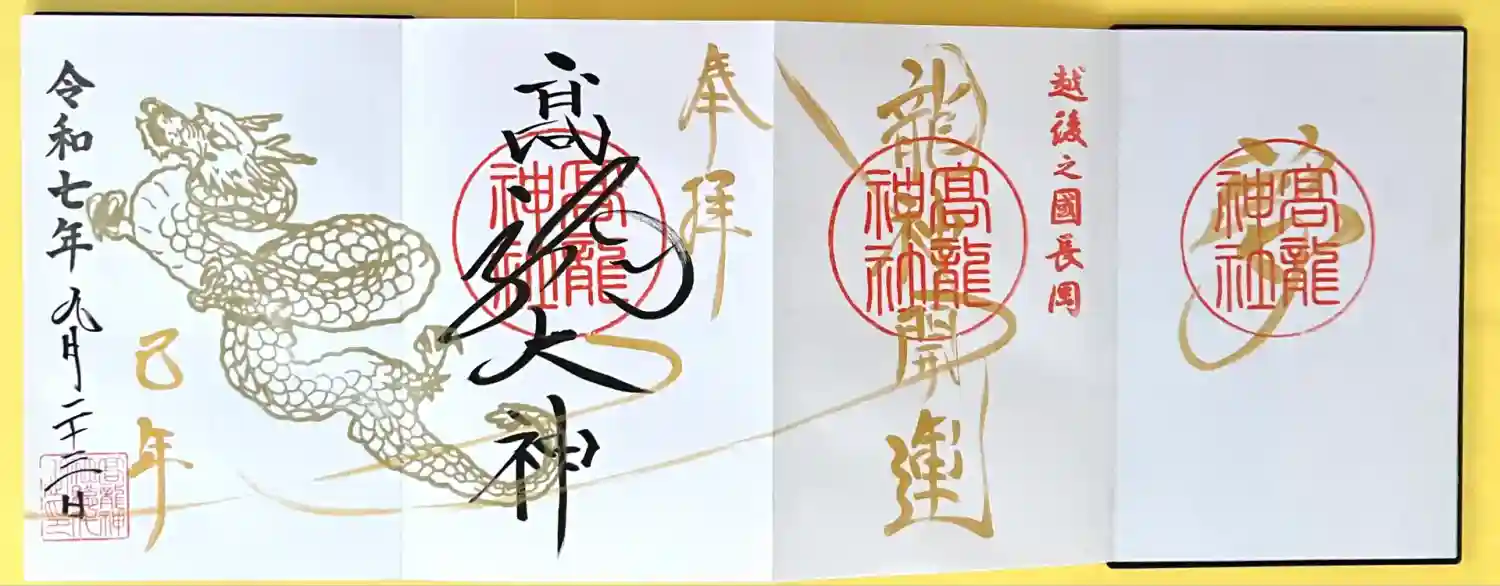 髙龍神社
越後之國長岡
龍神開運
髙龍神社
奉拝
髙龍大神
髙龍神社
巳年
令和七年九月二十三日